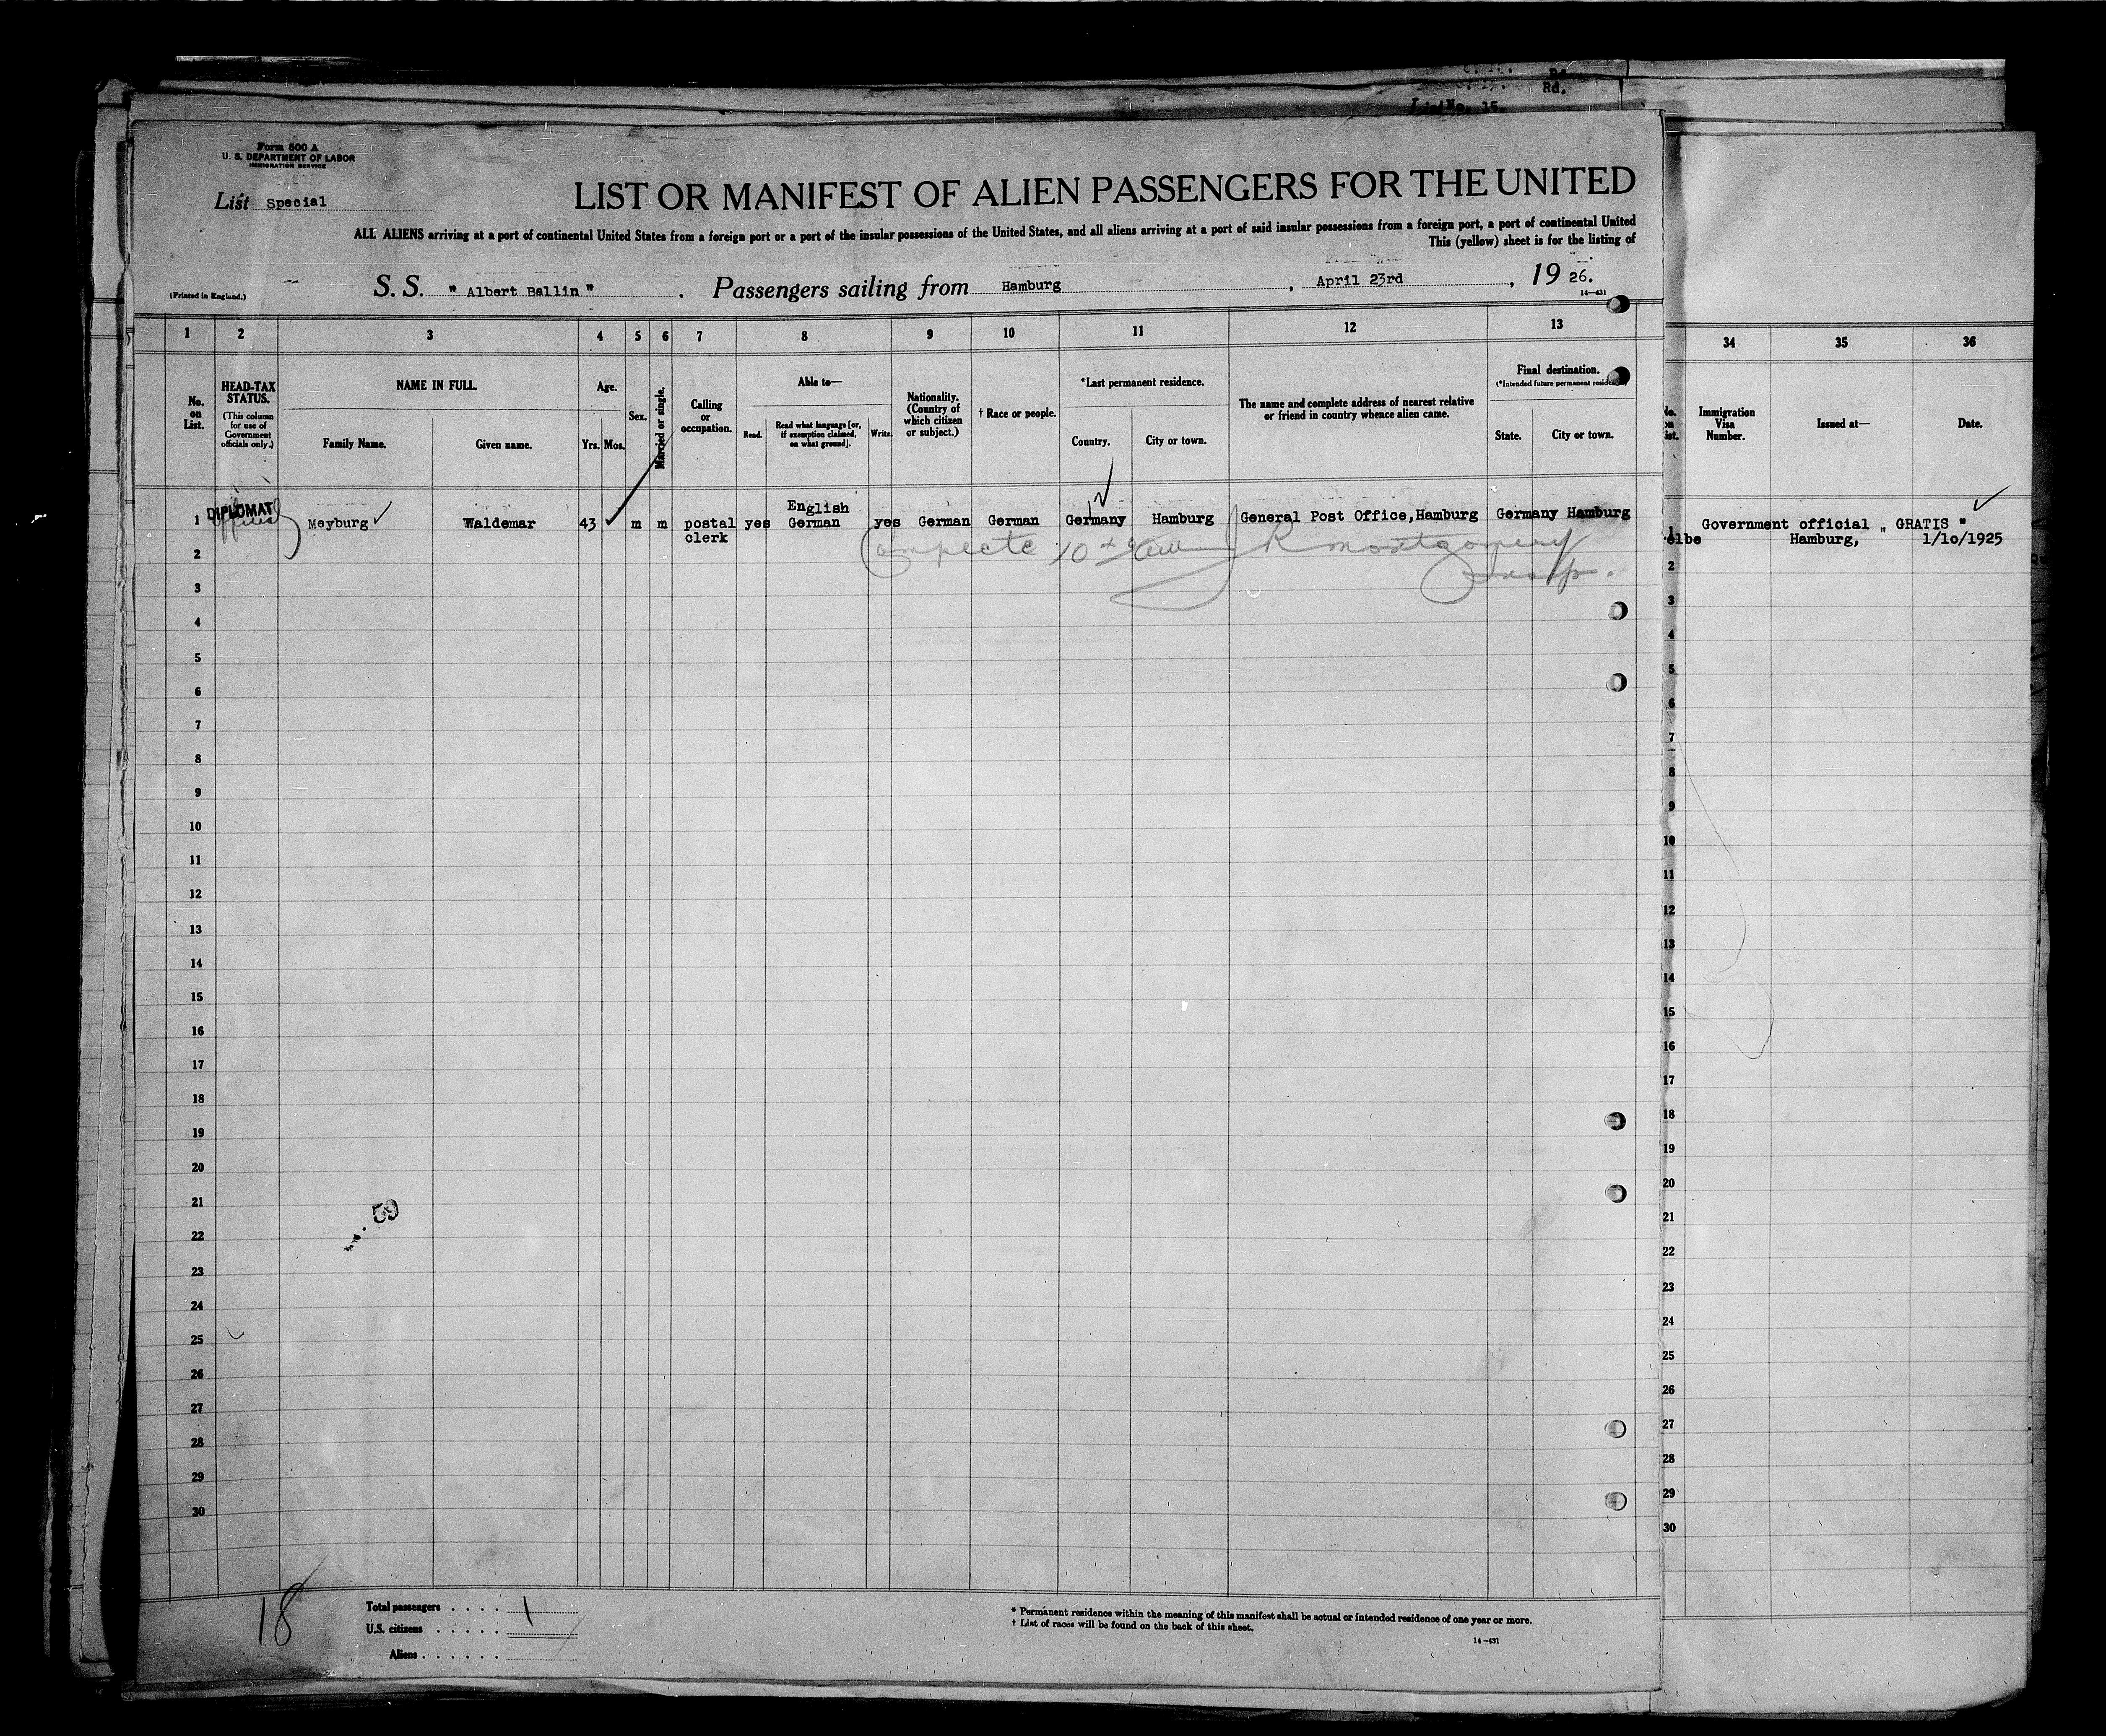 Rd.
List No. 15.
Form 500 A
U. S. DEPARTMENT OF LABOR
IMMIGRATION SERVICE
List Special
LIST OR MANIFEST OF ALIEN PASSENGERS FOR THE UNITED
ALL ALIENS arriving at a port of continental United States from a foreign port or a port of the insular possessions of the United States, and all aliens arriving at a port of said insular possessions from a foreign port, a port of continental United
This (yellow) sheet is for the listing of
(Printed in England.)
S. S. " Albert Ballin " . Passengers sailing from Hamburg , April 23rd , 19 26.
14—431
1 2 3 4 5 6 7 8 9 10 11 12 13 34 35 36
No. on List.
HEAD-TAX STATUS.
(This column for use of Government officials only.)
NAME IN FULL.
Family Name. Given name.
Age.
Yrs. Mos.
Sex.
Married or single.
Calling or occupation.
Able to—
Read. Read what language [or, if exemption claimed, on what ground]. Write.
Nationality. (Country of which citizen or subject.)
† Race or people.
*Last permanent residence.
Country. City or town.
The name and complete address of nearest relative or friend in country whence alien came.
Final destination.
(*Intended future permanent
State. City or town.
Immigration Visa Number.
Issued at—
Date.
1 DIPLOMAT Meyburg Waldemar 43 m m postal clerk yes English German yes German German Germany Hamburg General Post Office,Hamburg Germany Hamburg
official
1 Government official „ GRATIS "
elbe Hamburg, 1/10/1925
Complete R Montgomery
Insp.
2 2
3 3
4 4
5 5
6 6
7 7
8 8
9 9
10 10
11 11
12 12
13 13
14 14
15 15
16 16
17 17
18 18
19 19
20 20
21 21
59
22 22
23 23
24 24
25 25
26 26
27 27
28 28
29 29
30 30
18
Total passengers . . . . 1
U.S. citizens . . . . .
Aliens . . . . . .
* Permanent residence within the meaning of this manifest shall be actual or intended residence of one year or more.
† List of races will be found on the back of this sheet.
14—431